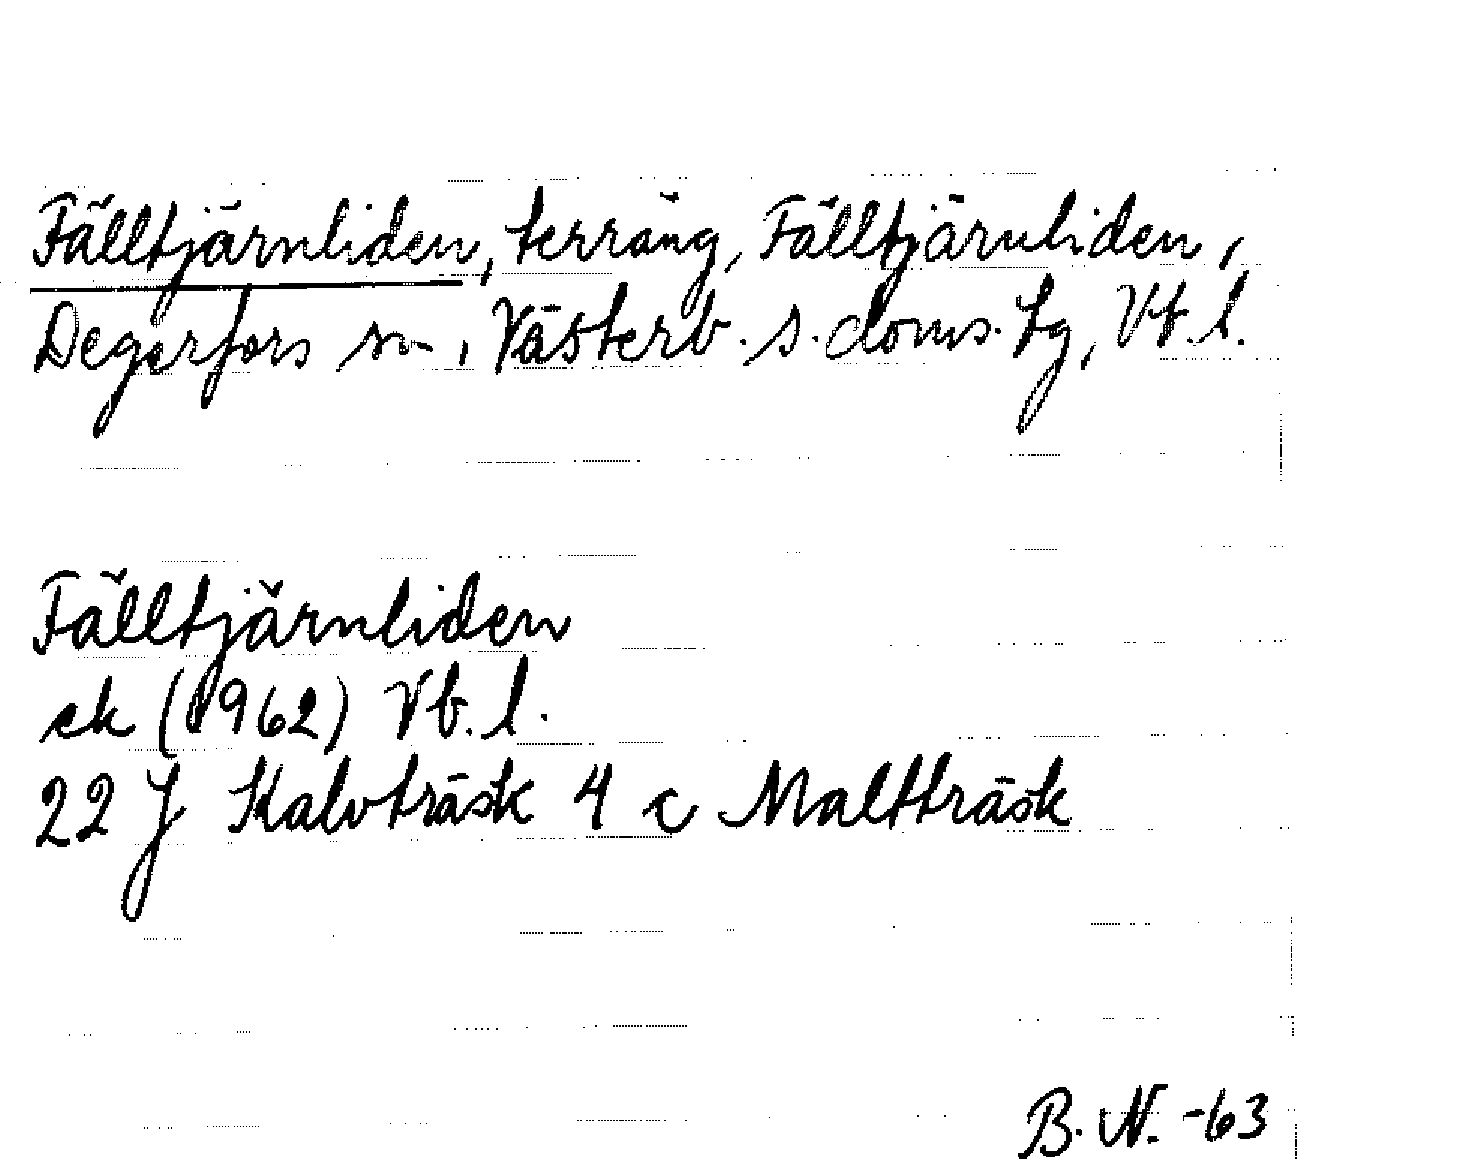 Fälltjärnliden, terräng, Fälltjärnliden,
Degerfors sn, Västerb. s. doms. tg, Vb. l.
Fälltjärnliden
ek (1962) Vb. l.
22 J Kalvträsk 4 c Maltträsk
B. N. -63